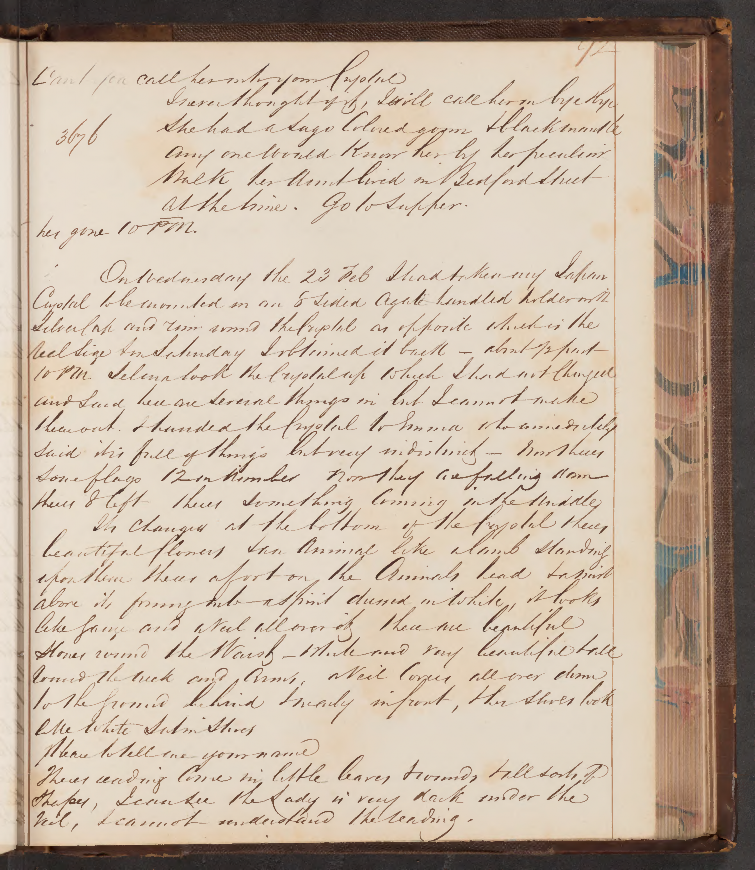 92
Can't you call her into your Crystal
I never thought of it, I will call her in bye & bye
3676
She had a Sage Colored gown & black mantle
any one would Know her by her peculiar
Walk her Aunt lived in Bedford Street
at the time. Go to Supper.
has gone 10 PM.
On Wednesday the 23 Feb I had taken my Japan
Crystal to be mounted in an 8 sided agate handled holder with
Silver Cap and rim round the Crystal as opposite which is the
real size & on Saturday I obtained it back — about ½ past
10 PM Selina took the Crystal up which I had not Charged
and said here are several things in but I cannot make
them out. I handed the Crystal to Emma who immediately
said it is full of things but very indistinct — now theres
some flags 12 in Number now they are falling down
theres 8 left theres something Coming in the Middle
Its changed at the bottom of the Crystal theres
beautiful flowers & an Animal like a lamb Standing
upon them theres a foot on the Animals head & a mist
above its forming into a spirit dressed in white, it looks
like gauze and a Veil all over it, there are beautiful
Stones round the Waist — White and very beautiful & all
round the neck and Arms, a Veil Covers all over down
to the ground behind & nearly in front, & her shoes look
like white Satin Shoes
Please to tell me your name
Theres reading Come in, little leaves & rounds & all sorts of
Shapes, I can see the Lady is very dark under the
Veil, I cannot understand the reading.